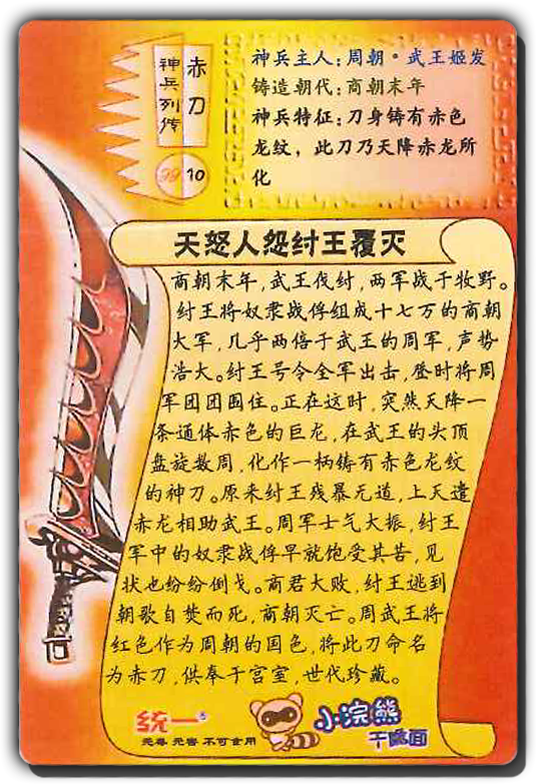 赤刀
神兵列传
99
10
神兵主人：周朝·武王姬发
铸造朝代：商朝末年
神兵特征：刀身铸有赤色
龙纹，此刀乃天降赤龙所
化
天怒人怨纣王覆灭
商朝末年，武王伐纣，两军战于牧野。
纣王将奴隶战俘组成十七万的商朝
大军，几乎两倍于武王的周军，声势
浩大。纣王号令全军出击，登时将周
军团团围住。正在这时，突然天降一
条通体赤色的巨龙，在武王的头顶
盘旋数周，化作一柄铸有赤色龙纹
的神刀。原来纣王残暴无道，上天遣
赤龙相助武王。周军士气大振，纣王
军中的奴隶战俘早就饱受其苦，见
状也纷纷倒戈。商君大败，纣王逃到
朝歌自焚而死，商朝灭亡。周武王将
红色作为周朝的国色，将此刀命名
为赤刀，供奉于宫室，世代珍藏。
统一®
无毒 无害 不可食用
小浣熊
干脆面